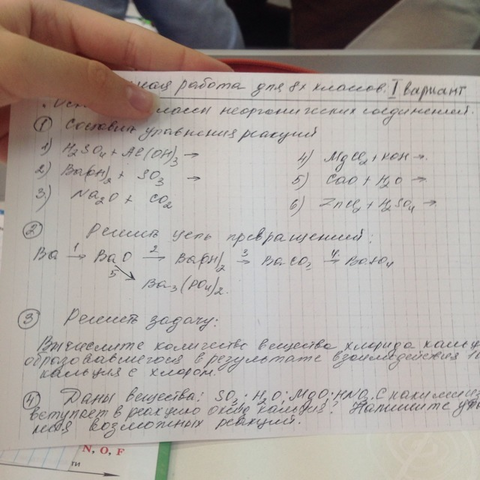 работа для 8х классов. I вариант
неорганических соединений.
① Составить уравнения реакций
1) H2SO4 + Al(OH)3 →
2) Ba(OH)2 + SO3 →
3) Na2O + CO2
4) MgCl2 + KOH →
5) CaO + H2O →
6) ZnCl2 + H2SO4 →
② Решить цепь превращений:
Ba 1→ BaO 2→ Ba(OH)2 3→ BaCO3 4→ BaSO4
5
Ba3(PO4)2.
③ Решить задачу:
Вычислите количество вещества хлорида
образовавшегося в результате взаимодействия
кальция с хлором.
④ Даны вещества: SO3; H2O; MgO; HNO3. С какими из
вступает в реакцию оксид кальция? Напишите
возможных реакций.
N, O, F